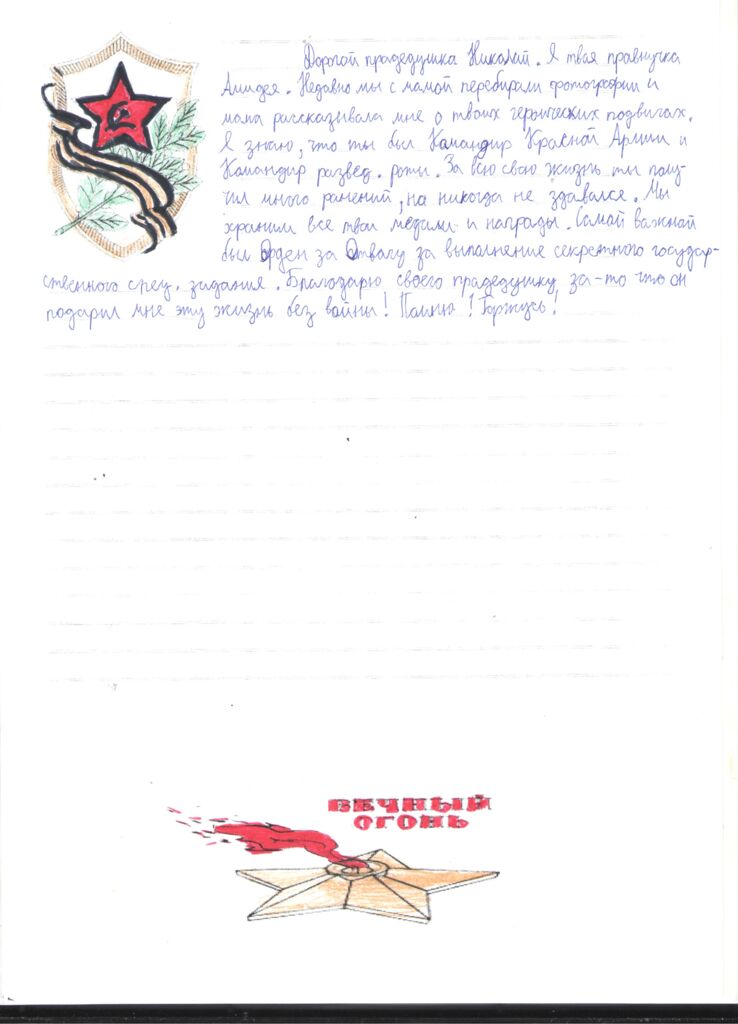 Дорогой прадедушка Николай. Я твая правнучка
Амидея. Недавно мы с мамой перебирали фотографии и
мама рассказывала мне о твоих героических подвигах.
Я знаю, что ты был Камандир Красной Армии и
Камандир развед. роты. За всю свою жизнь ты полу-
чил много ранений, на никогда не здавался. Мы
храним все твои медали и награды. Самай важной
был Орден за Отвагу за выполнение секретного государ-
ственного спец. задания. Благодарю своего прадедушку за-то что он
подарил мне эту жизнь без вайны! Помню! Горжусь!
ВЕЧНЫЙ
ОГОНЬ